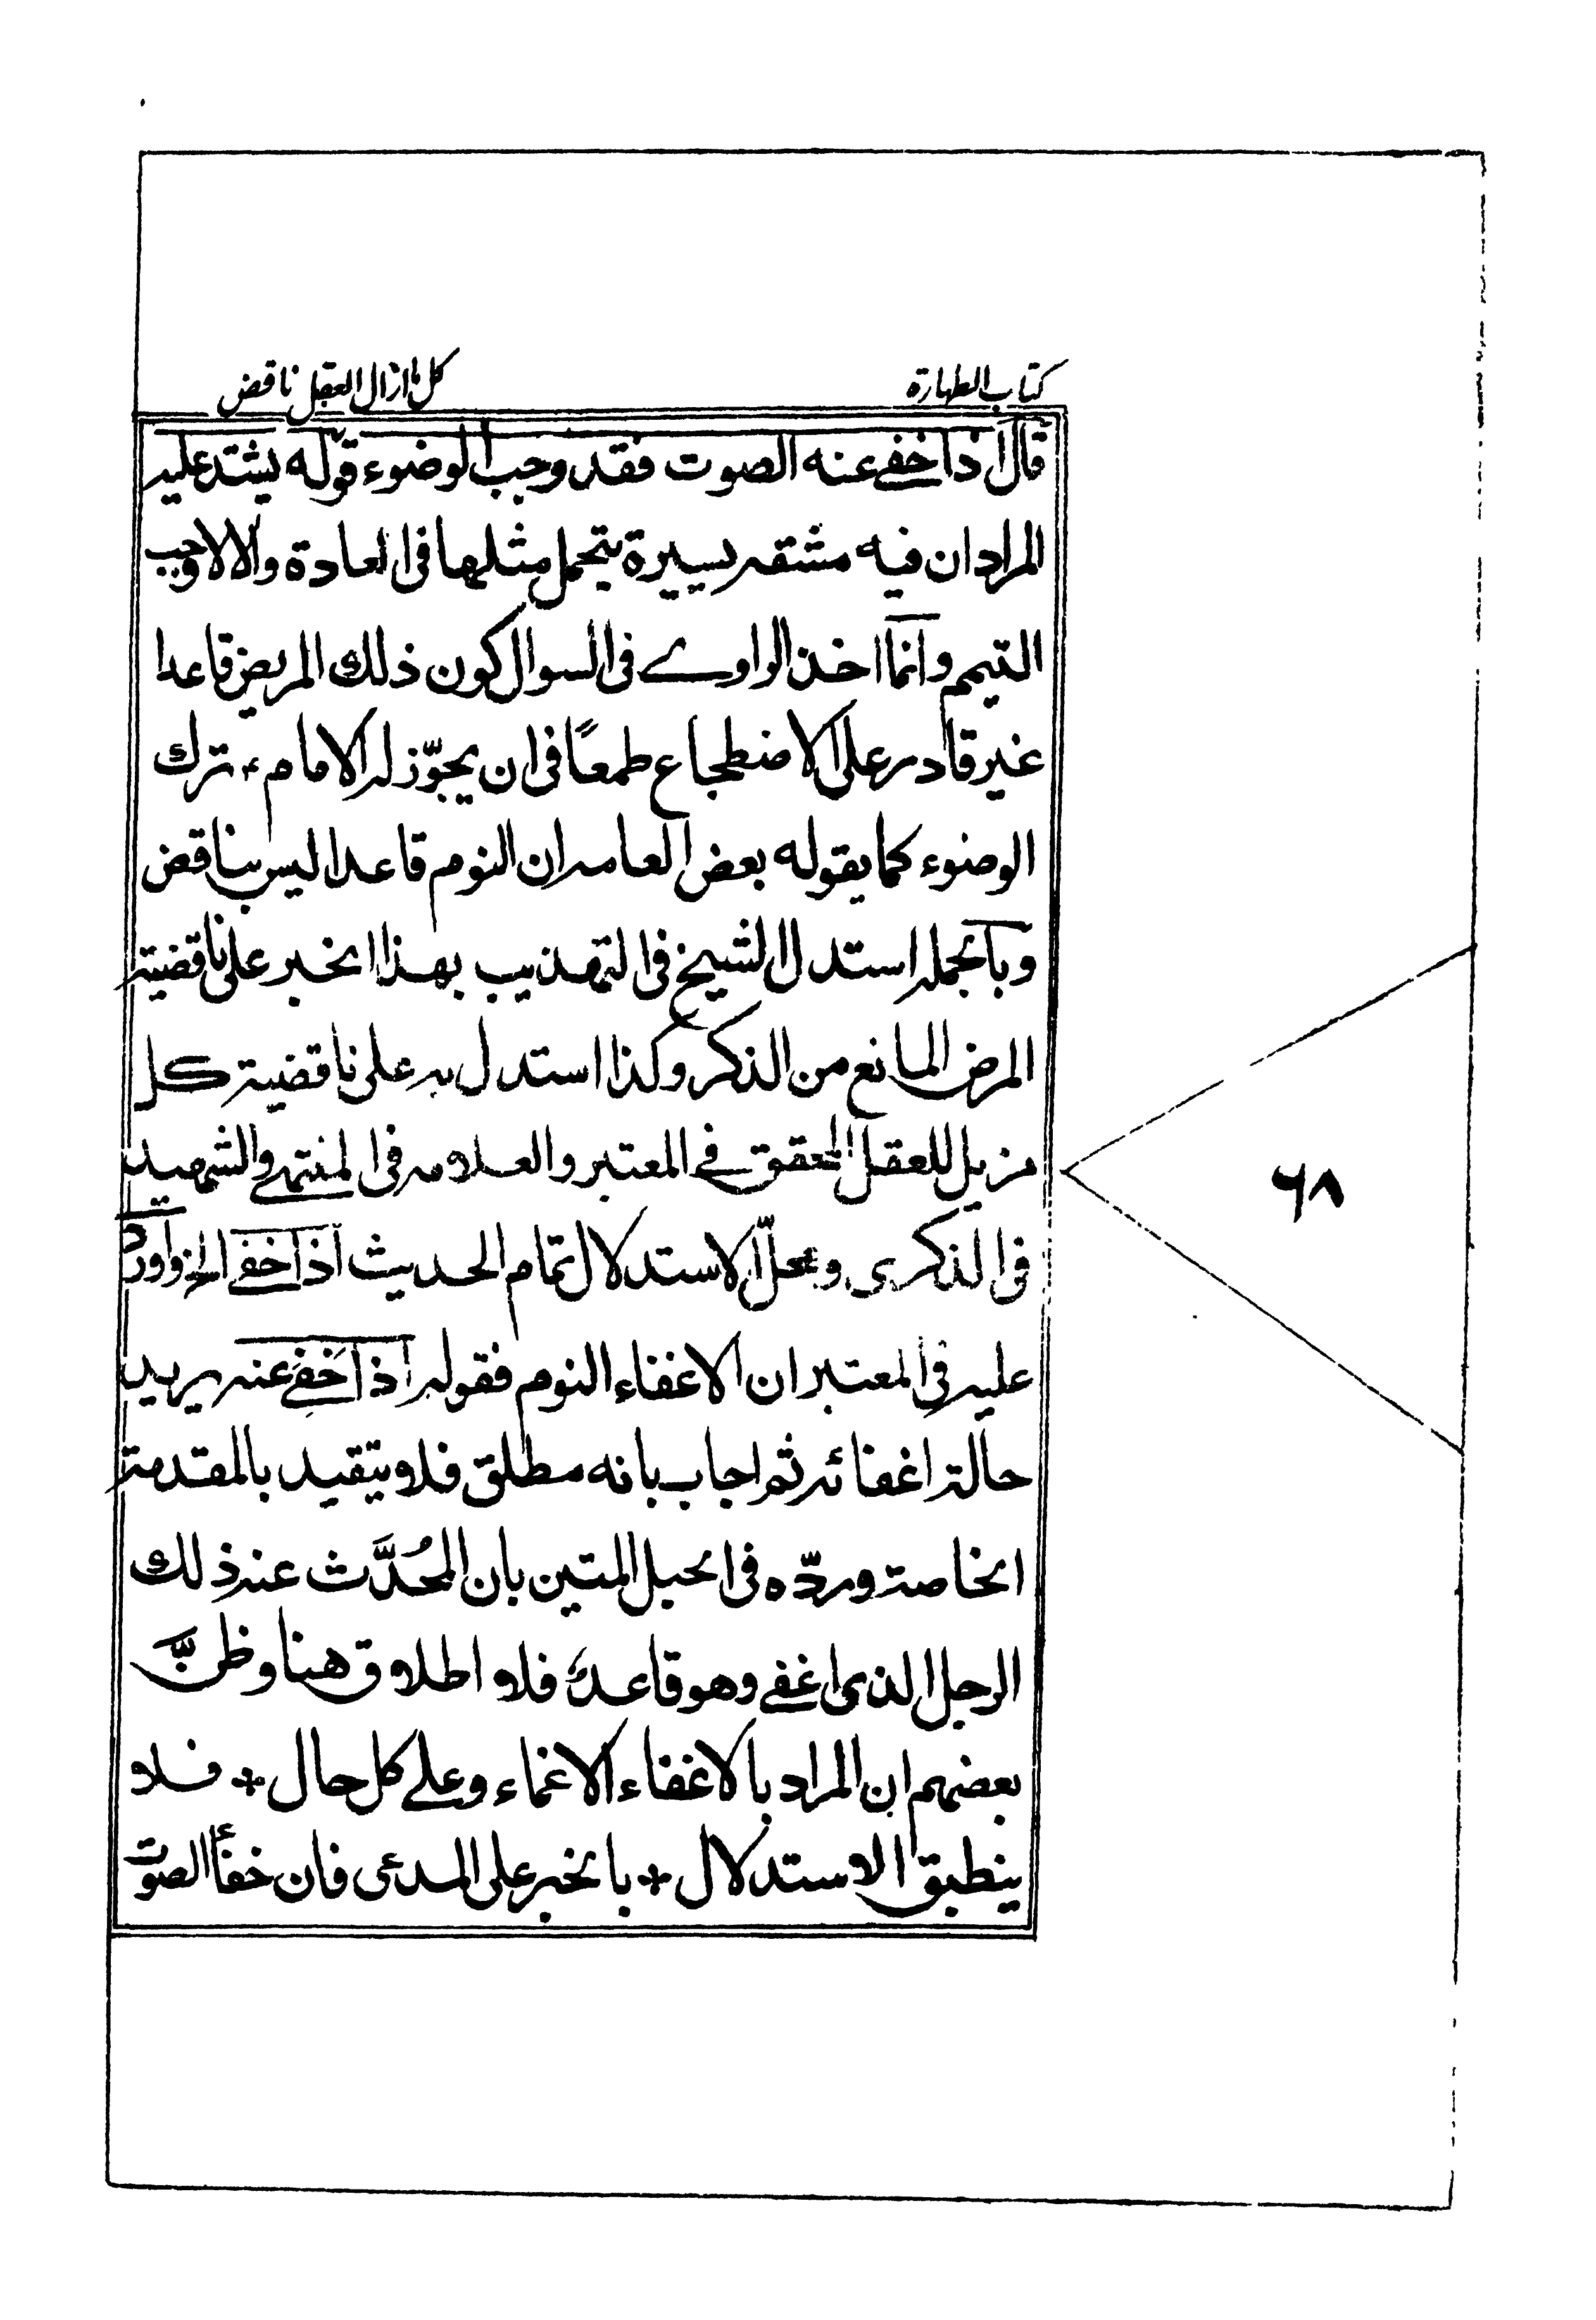 كتاب الطهارة
كل ما ازال العقل ناقض
قال اذا خفى عنه الصوت فقد وجب الوضوء قوله يشتد عليه
المراد ان فيه مشقة يسيرة يتحمل مثلها فى العادة والا لاوجب
التيمم وانما اخذ الراوى فى السوال كون ذلك المريض قاعدا
غير قادر على الاضطجاع طمعًا فى ان يجوّز له الامام ء ترك
الوضوء كما يقوله بعض العامة ان النوم قاعدا ليس بناقض
وبالجملة استدل الشيخ فى التهذيب بهذا الخبر على ناقضية
المرض المانع من الذكر وكذا استدل به على ناقضية كل
مزيل للعقل المحقق فى المعتبر والعلامة فى المنتهى والشهيد
فى الذكرى ومحلّ الاستدلال تمام الحديث اذا خفى الخ واورد
عليه فى المعتبر ان الاغفاء النوم فقوله اذا خفى عنه يريد
حالة اغفائه ثم اجاب بانه مطلق فلا يتقيد بالمقدمة
الخاصة وردّه فى الحبل المتين بان المُحدَّث عنه ذلك
الرجل الذى اغفى وهو قاعد فلا اطلاق هنا وظنّ
بعضهم ان المراد بالاغفاء الاغماء وعلى كل حال * فلا
ينطبق الاستدلال * بالخبر على المدعى فان خفاء الصوت
٦٨